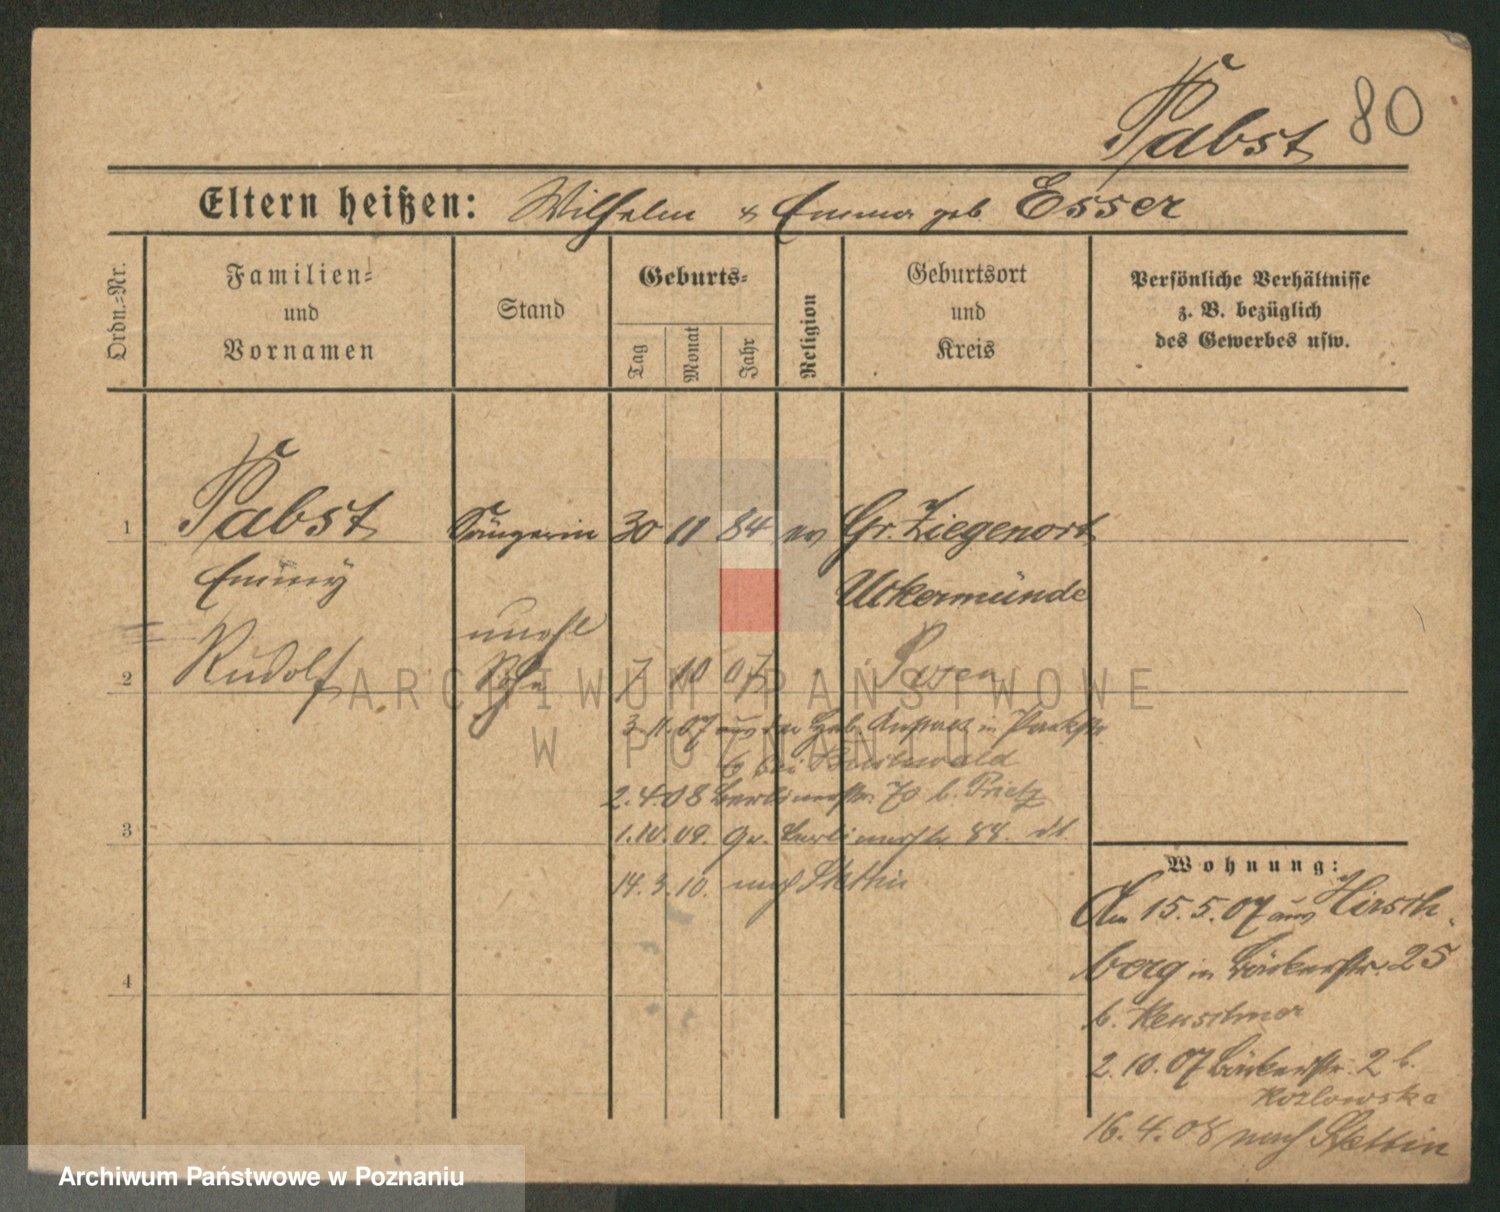 Pabst 80
Eltern heißen: Wilhelm & Emma geb. Esser
Ordn.-Nr.
Familien-
und
Vornamen
Stand
Geburts-
Tag
Monat
Jahr
Religion
Geburtsort
und
Kreis
Persönliche Verhältnisse
z. B. bezüglich
des Gewerbes usw.
1 Pabst Sängerin 30 11 84 ev Gr. Ziegenort
Emmy Uckermünde
unehl
2 Rudolf Sohn 7 10 07 Posen
3.11.07 aus der Geb. Anstalt in Parkstr
6 bei
2.4.08 Berlinerstr. b. Prietz
3 1.10.09. Gr. Berlinerstr. 88.
14.3.10. nach Stettin
4
Wohnung:
Am 15.5.07 aus Hirsch-
berg in Bäckerstr. 25
b.
2.10.07 Bäckerstr. 2 b.
Kozlowska
16.4.08 nach Stettin
ARCHIWUM PAŃSTWOWE
W POZNANIU
Archiwum Państwowe w Poznaniu